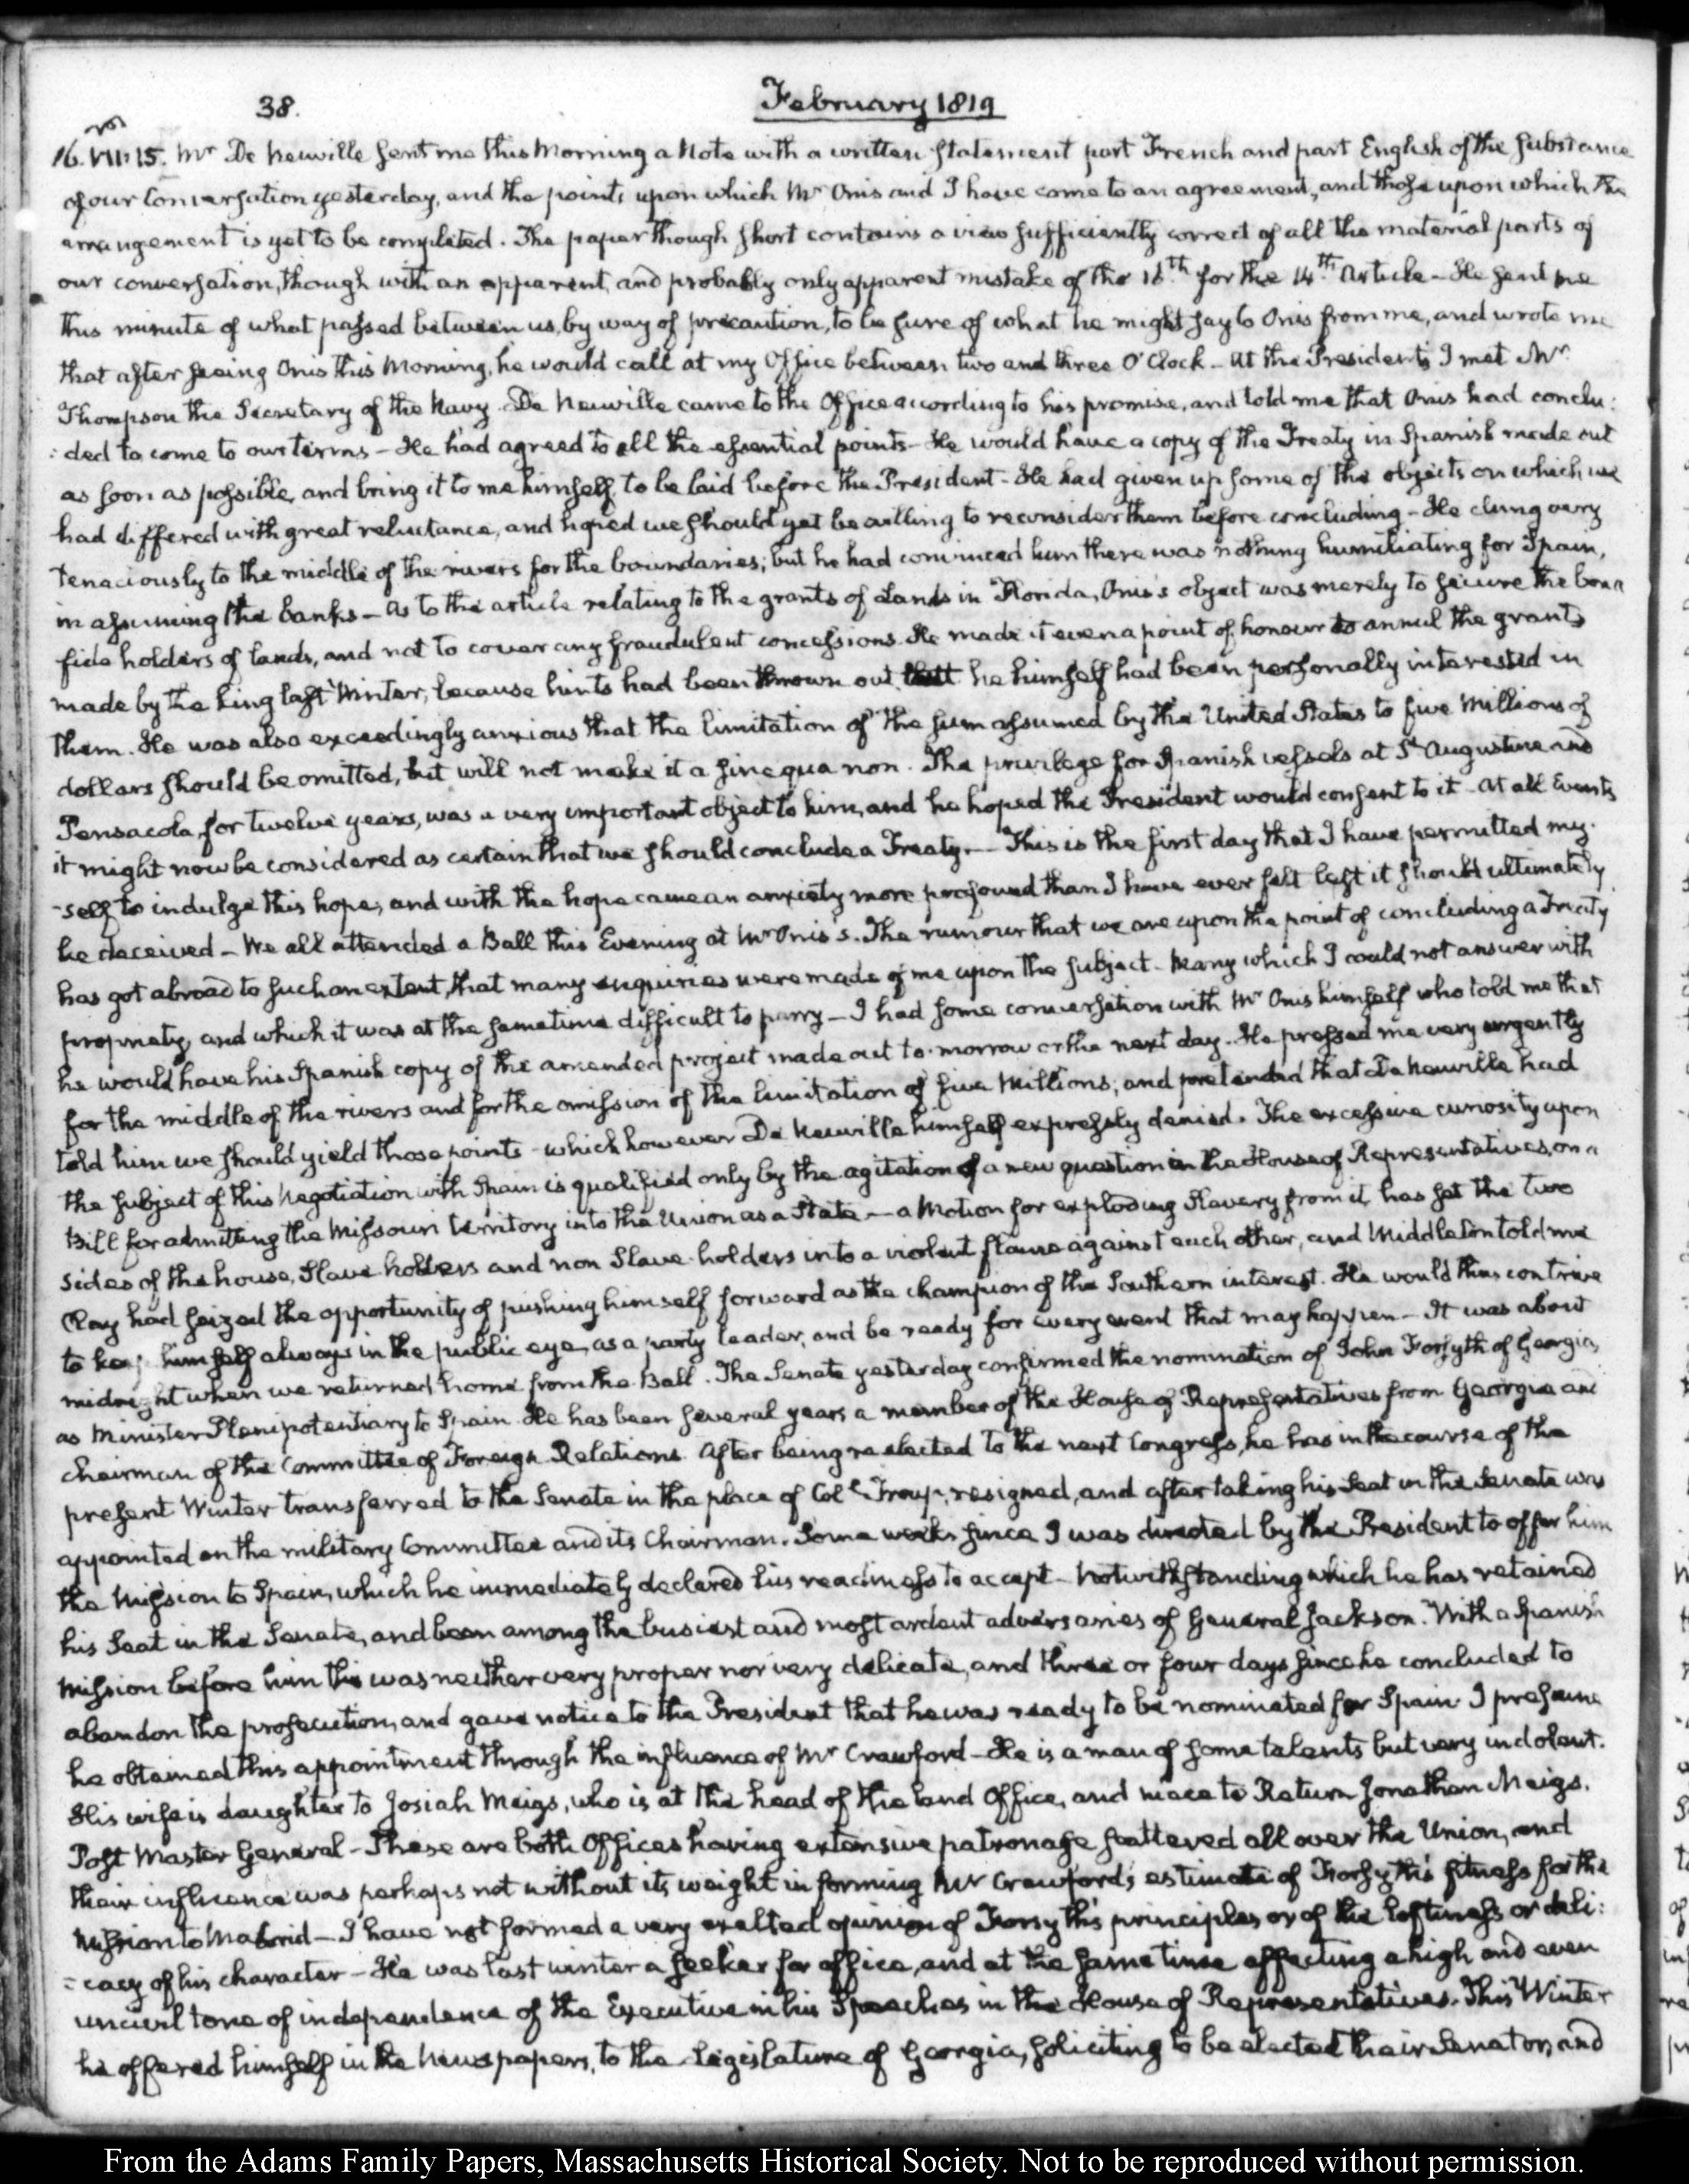 38.
February 1819
16. VII:15. Mr De Neuville sent me this Morning a Note with a written statement part French and part English of the substance
of our Conversation yesterday, and the points upon which Mr Onis and I have come to an agreement, and those upon which the
arrangement is yet to be completed. The paper though short contains a view sufficiently correct of all the material parts of
our conversation, though with an apparent, and probably only apparent mistake of the 16th for the 14th Article – He sent me
this minute of what passed between us, by way of precaution, to be sure of what he might say to Onis from me, and wrote me
that after seeing Onis this Morning, he would call at my Office between two and three O'Clock – At the President's I met Mr
Thompson the Secretary of the Navy. De Neuville came to the Office according to his promise, and told me that Onis had conclu:
:ded to come to our terms – He had agreed to all the essential points – He would have a copy of the Treaty in Spanish made out
as soon as possible, and bring it to me himself, to be laid before the President – He had given up some of the objects on which we
had differed with great reluctance, and hoped we should yet be willing to reconsider them before concluding – He clung very
tenaciously to the middle of the rivers for the boundaries; but he had convinced him there was nothing humiliating for Spain,
in assuming the banks – As to the article relating to the grants of Lands in Florida, Onis's object was merely to secure the bona
fide holders of lands, and not to cover any fraudulent concessions. He made it even a point of honour to annul the grants
made by the King last Winter, because hints had been thrown out that he himself had been personally interested in
them. He was also exceedingly anxious that the limitation of the sum assumed by the United States to five Millions of
dollars should be omitted, but will not make it a sine qua non. The privilege for Spanish vessels at St Augustine and
Pensacola, for twelve years, was a very important object to him, and he hoped the President would consent to it – At all Events
it might now be considered as certain that we should conclude a Treaty. – This is the first day that I have permitted my-
-self to indulge this hope, and with the hope came an anxiety more profound than I have ever felt lest it should ultimately
be deceived – We all attended a Ball this Evening at Mr Onis's. The rumour that we are upon the point of concluding a Treaty
has got abroad to such an extent, that many enquiries were made of me upon the subject – Many which I could not answer with
propriety, and which it was at the same time difficult to parry – I had some conversation with Mr Onis himself who told me that
he would have his Spanish copy of the amended project made out to-morrow or the next day. He pressed me very urgently
for the middle of the rivers and for the omission of the limitation of five Millions; and pretended that De Neuville had
told him we should yield those points – which however De Neuville himself expressly denied. The excessive curiosity upon
the subject of this Negotiation with Spain is qualified only by the agitation of a new question in the House of Representatives, on a
Bill for admitting the Missouri territory into the Union as a State – a Motion for exploding Slavery from it, has set the two
sides of the house, Slave holders and non Slave-holders into a violent flame against each other, and Middleton told me
Clay had seized the opportunity of pushing himself forward as the champion of the Southern interest. He would thus contrive
to keep himself always in the public eye, as a party leader, and be ready for every event that may happen – It was about
midnight when we returned home from the Ball. The Senate yesterday confirmed the nomination of John Forsyth of Georgia,
as Minister Plenipotentiary to Spain. He has been several years a member of the House of Representatives from Georgia and
Chairman of the Committee of Foreign Relations. After being reelected to the next Congress, he has in the course of the
present Winter transferred to the Senate in the place of Coll Troup, resigned, and after taking his Seat in the Senate was
appointed on the military Committee and its Chairman. Some weeks since I was directed by the President to offer him
the Mission to Spain, which he immediately declared his readiness to accept – Notwithstanding which he has retained
his Seat in the Senate, and been among the busiest and most ardent adversaries of General Jackson. With a Spanish
Mission before him this was neither very proper nor very delicate, and three or four days since he concluded to
abandon the prosecution, and gave notice to the President that he was ready to be nominated for Spain. I presume
he obtained this appointment through the influence of Mr Crawford – He is a man of some talents but very indolent.
His wife is daughter to Josiah Meigs, who is at the head of the land Office, and niece to Return Jonathan Meigs,
Post Master General – These are both Offices having extensive patronage scattered all over the Union, and
their influence was perhaps not without its weight in forming Mr Crawford's estimate of Forsyth's fitness for the
Mission to Madrid – I have not formed a very exalted opinion of Forsyth's principles or of the loftiness or deli:
:cacy of his character – He was last winter a seeker for office, and at the same time affecting a high and even
uncivil tone of independence of the Executive in his Speeches in the House of Representatives. This Winter
he offered himself in the Newspapers, to the Legislature of Georgia, soliciting to be elected their Senator, and
From the Adams Family Papers, Massachusetts Historical Society. Not to be reproduced without permission.